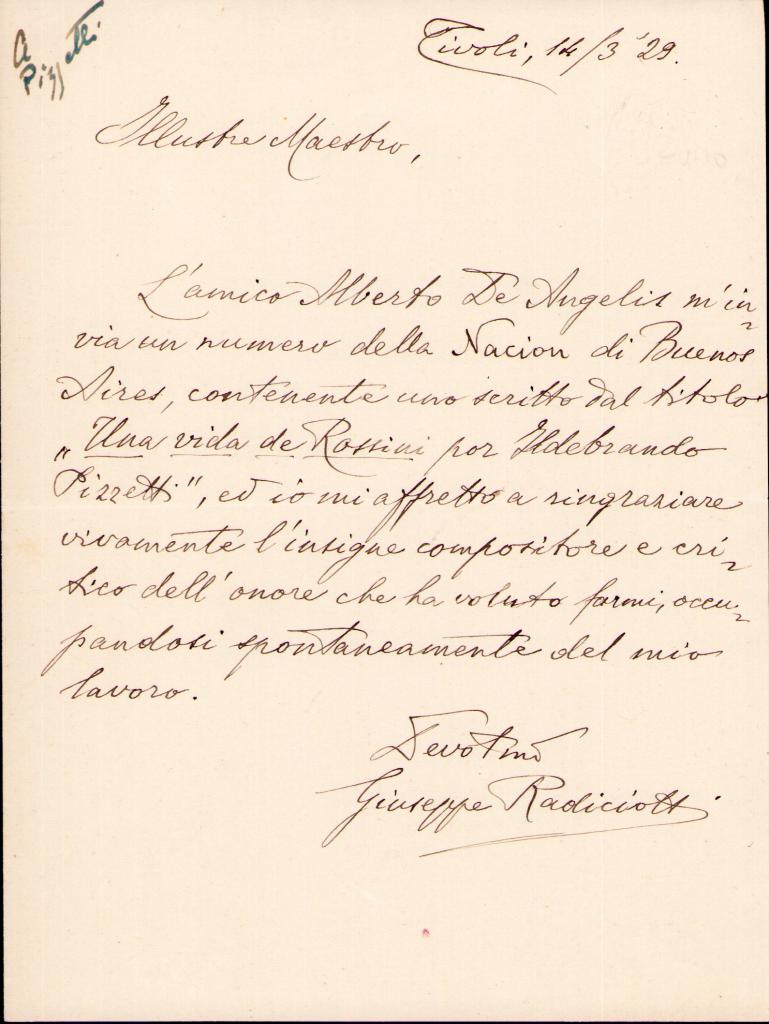 A
Pizzetti
Tivoli, 14/3 '29.
Illustre Maestro,
L'amico Alberto De Angelis m'in=
via un numero della Nacion di Buenos
Aires, contenente uno scritto dal titolo
„Una vida de Rossini por Ildebrando
Pizzetti", ed io mi affretto a ringraziare
vivamente l'insigne compositore e cri=
tico dell'onore che ha voluto farmi, occu=
pandosi spontaneamente del mio
lavoro.
Devotmo
Giuseppe Radiciotti